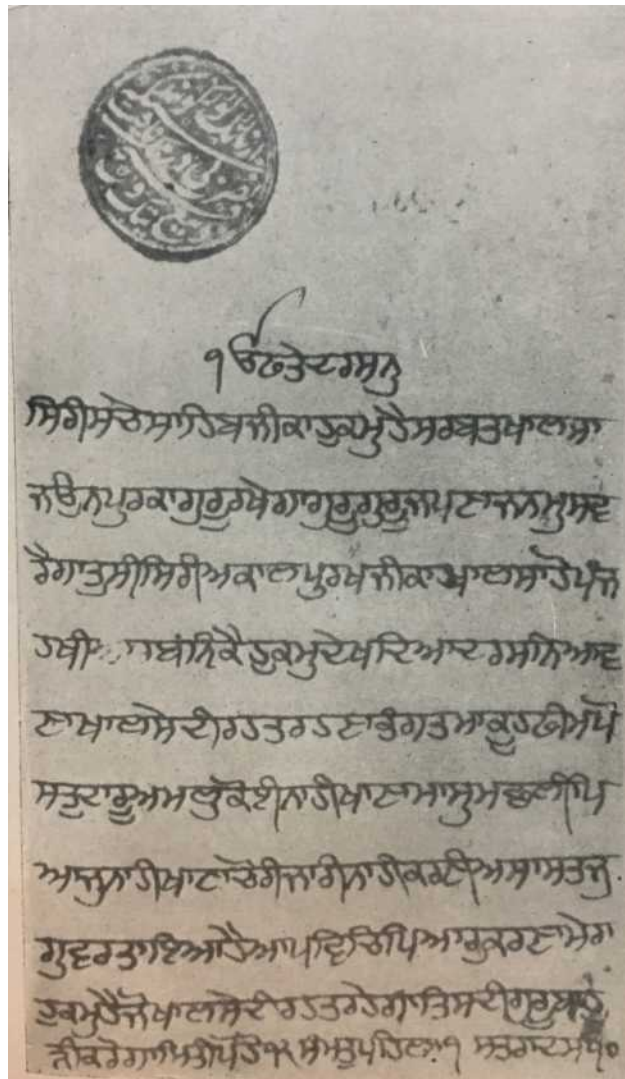 ੧ ੴ ਫਤੇ ਦਰਸਨੁ
ਸਿਰੀ ਸਚੇ ਸਾਹਿਬ ਜੀ ਕਾ ਹੁਕਮੁ ਹੈ ਸਰਬਤ ਖਾਲਸਾ
ਜਉਨਪੁਰ ਕਾ ਗੁਰੂ ਰਖੇਗਾ ਗੁਰੂ ਗੁਰੂ ਜਪਣਾ ਜਨਮੁ ਸਵ
ਰੈਗਾ ਤੁਸੀ ਸਿਰੀ ਅਕਾਲ ਪੁਰਖ ਜੀ ਕਾ ਖਾਲਸਾ ਹੋ ਪੰਜ
ਹਥੀਆਰ ਬੰਨਿ ਕੈ ਹੁਕਮੁ ਦੇਖਦਿਆ ਦਰਸਨਿ ਆਵ
ਣਾ ਖਾਲਸੇ ਦੀ ਰਹਤ ਰਹਣਾ ਭੰਗ ਤਮਾਕੂ ਹਫੀਮ ਪੋ
ਸਤੁ ਦਾਰੂ ਅਮਲੁ ਕੋਈ ਨਾਹੀ ਖਾਣਾ ਮਾਸੁ ਮਛਲੀ ਪਿ
ਆਜੁ ਨਾਹੀ ਖਾਣਾ ਚੋਰੀ ਜਾਰੀ ਨਾਹੀ ਕਰਣੀ ਅਸਾ ਸਤਜੁ
ਗੁ ਵਰਤਾਇਆ ਹੈ ਆਪ ਵਿਚਿ ਪਿਆਰੁ ਕਰਣਾ ਮੇਰਾ
ਹੁਕਮੁ ਹੈ ਜੋ ਖਾਲਸੇ ਦੀ ਰਹਤ ਰਹੇਗਾ ਤਿਸ ਦੀ ਗੁਰੂ ਬਾਹੁ
ੜੀ ਕਰੇਗਾ ਮਿਤੀ ਪੋਹ ੧੨ ਸੰਮਤੁ ਪਹਿਲਾ ੧ ਸਤਰਾ ਦਸ ੧੦